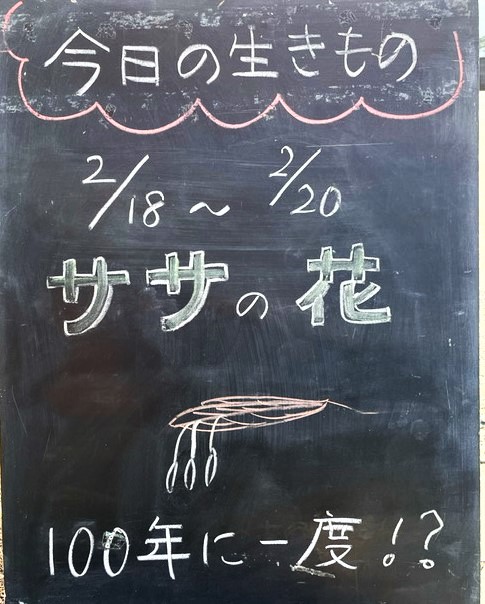 今日の生きもの
2/18〜2/20
ササの花
100年に一度!?